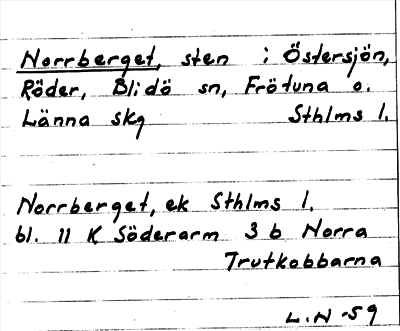 Norrberget, sten i Östersjön,
Röder, Blidö sn, Frötuna o.
Länna skg Sthlms l.
Norrberget, ek Sthlms l.
bl. 11 K Söderarm 3 b Norra
Trutkobbarna
L.N -59